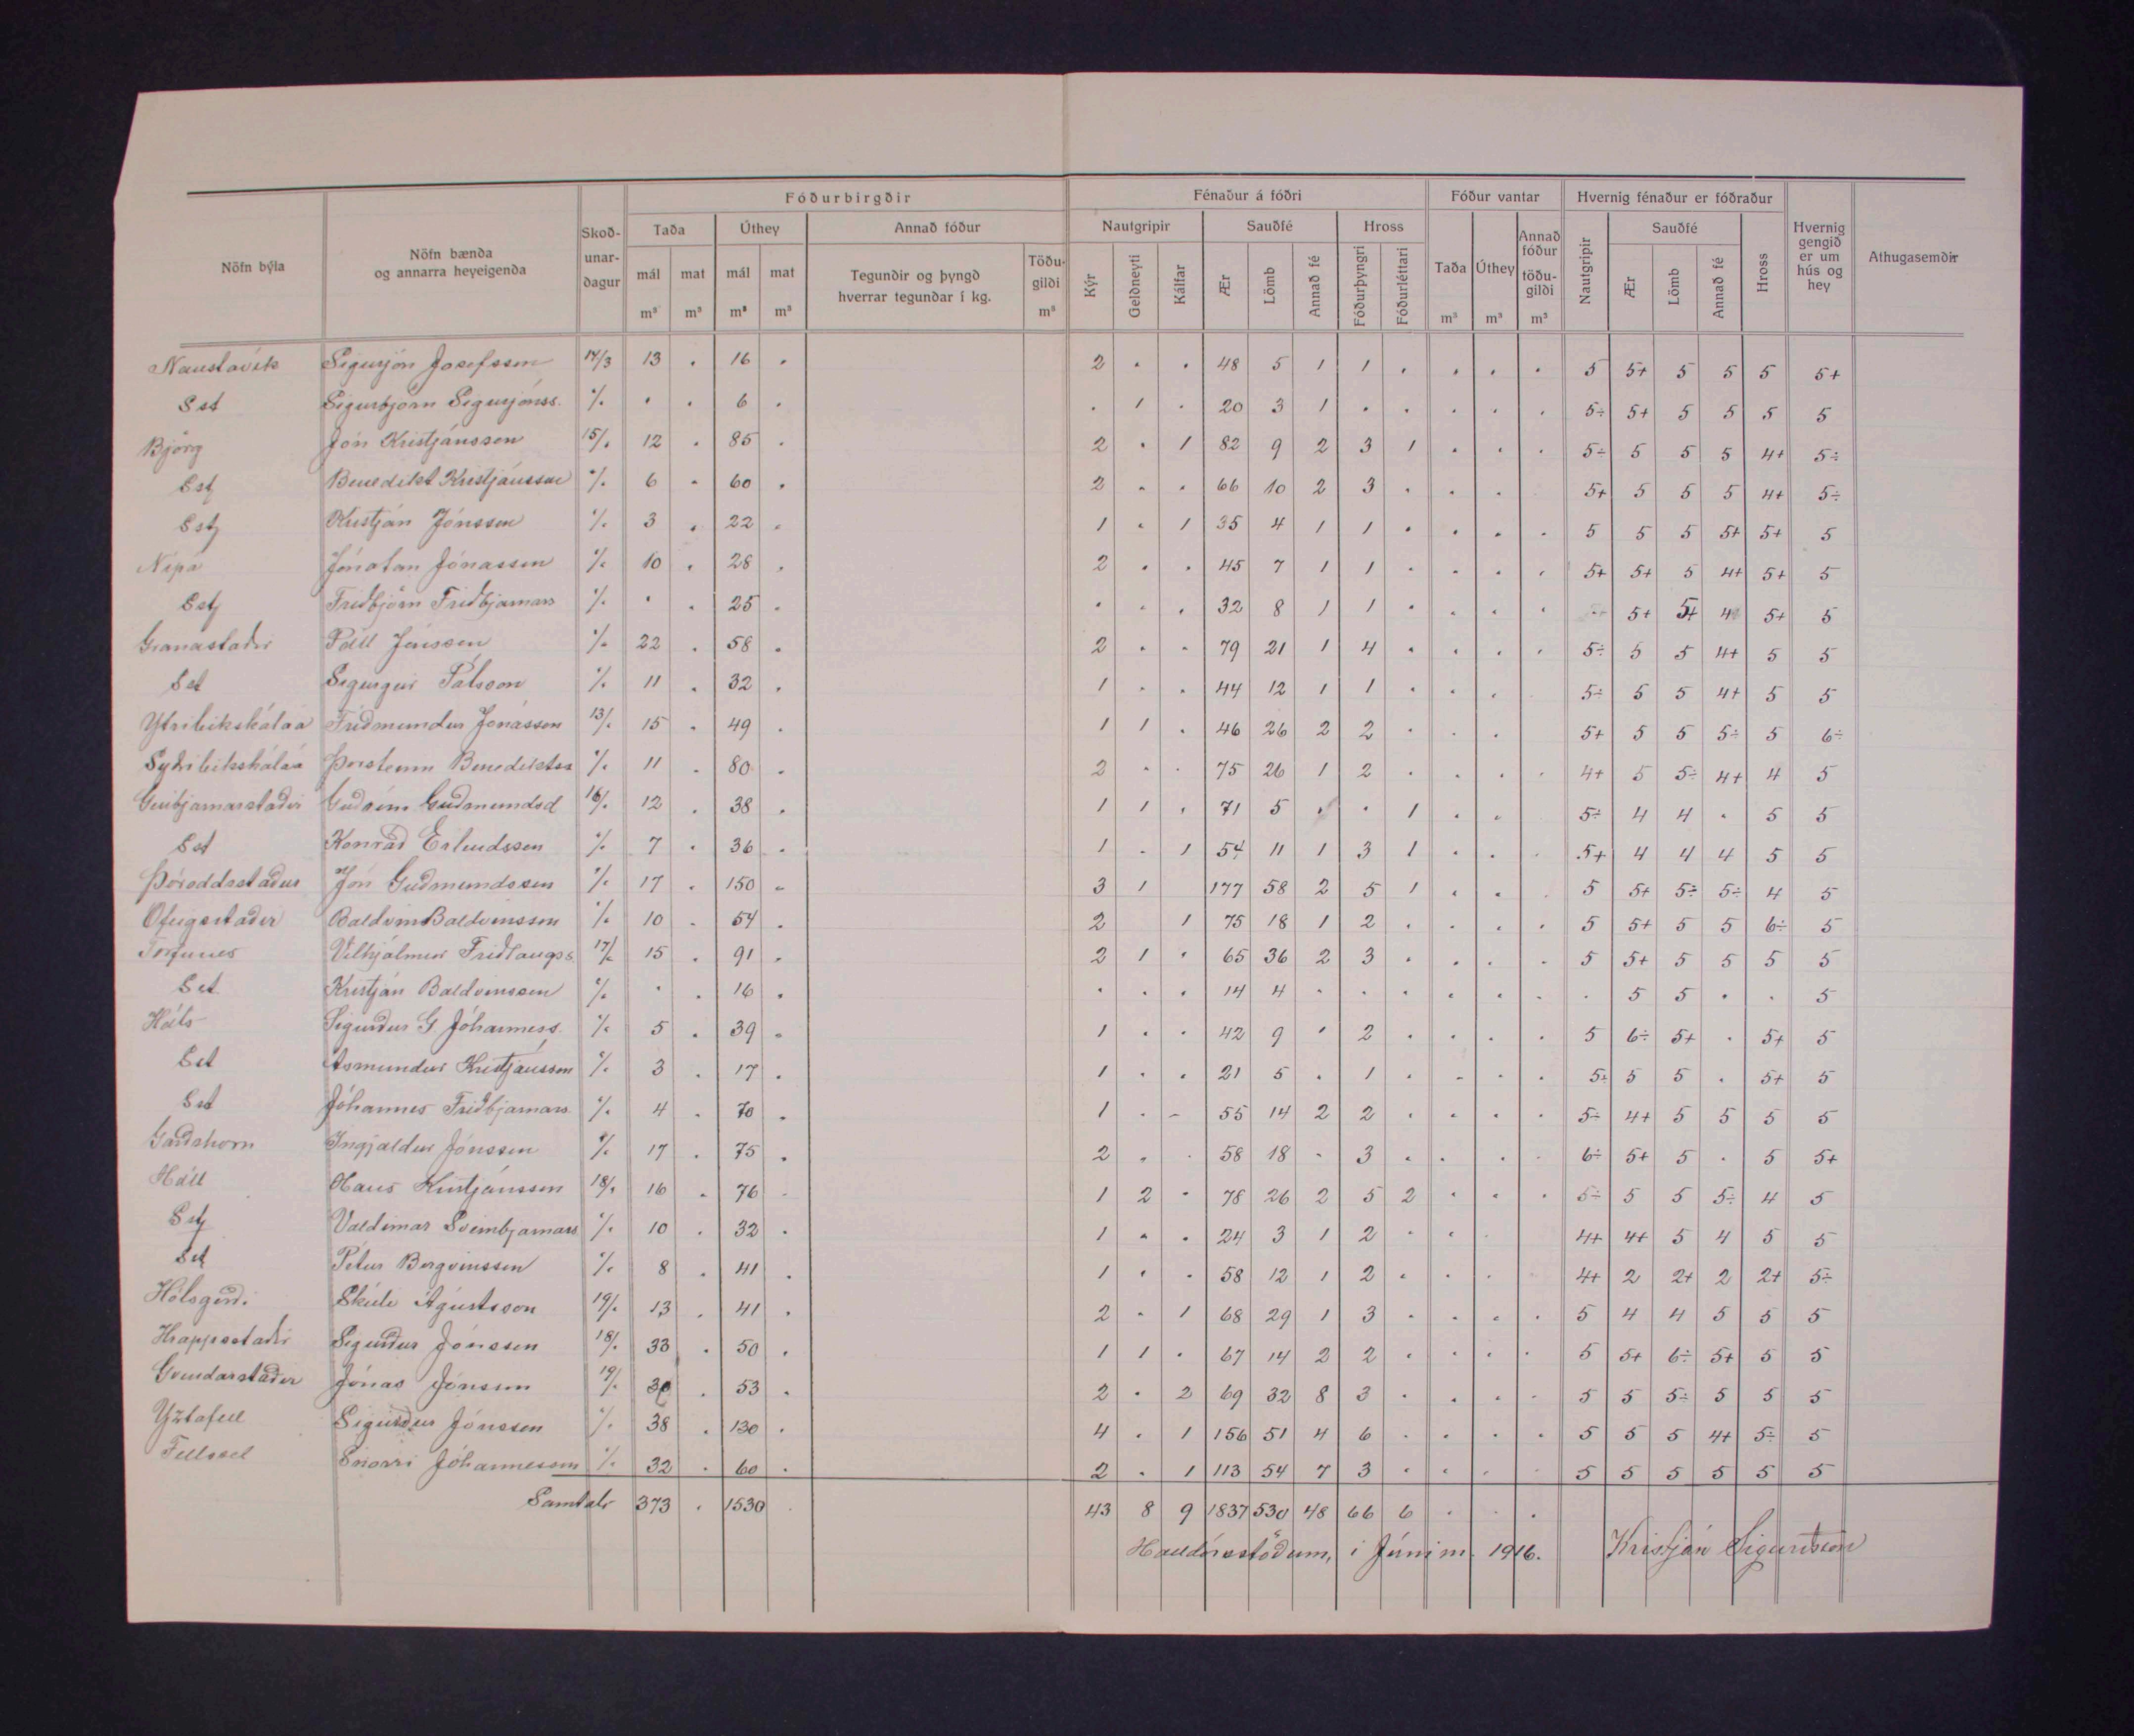 Fóðurbirgðir Fénaður á fóðri Fóður vantar Hvernig fénaður er fóðraður
Nöfn býla Nöfn bænda og annarra heyeigenda Skoðunardagur Taða Úthey Annað fóður Nautgripir Sauðfé Hross Taða Úthey Annað fóður töðugildi Nautgripir Sauðfé Hross Hvernig gengið er um hús og hey Athugasemdir
mál mat mál mat Tegundir og þyngd hverrar tegundar í kg. Töðugildi Kýr Geldneyti Kálfar Ær Lömb Annað fé Fóðurþyngri Fóðurléttari Ær Lömb Annað fé
m³ m³ m³ m³ m³ m³ m³ m³
Naustavík Sigurjón Josefsson 14/3 13 . 16 . 2 . . 48 5 1 1 . . . . 5 5+ 5 5 5 5+
Sst Sigurbjörn Sigurjónss. "/. . . 6 . . 1 . 20 3 1 . . . . . 5÷ 5+ 5 5 5 5
Björg Jón Kristjánsson 15/. 12 . 85 . 2 . 1 82 9 2 3 1 . . . 5÷ 5 5 5 4+ 5÷
Sst Benedikt Kristjánsson "/. 6 . 60 . 2 . . 66 10 2 3 . . . 5+ 5 5 5 4+ 5÷
Sst Kristján Jónsson "/. 3 . 22 . 1 . 1 35 4 1 1 . . . . 5 5 5 5+ 5+ 5
Nípá Jónatan Jónasson "/. 10 . 28 . 2 . . 45 7 1 1 . . . . 5+ 5+ 5 4+ 5+ 5
Sst Friðbjörn Friðbjarnars "/. . . 25 . . . . 32 8 1 1 . . . . 5+ 5+ 4 5+ 5
Granastaðir Páll Jónsson "/. 22 . 58 . 2 . . 79 21 1 4 . . . . 5÷ 5 5 4+ 5 5
Sst Sigurgeir Pálsson "/. 11 . 32 . 1 . . 44 12 1 1 . . . 5÷ 5 5 4+ 5 5
Ytrileikskálaá Friðmundur Jónasson 13/. 15 . 49 . 1 1 . 46 26 2 2 . . . 5+ 5 5 5÷ 5 6÷
Syðrileikskálaá Þorsteinn Benediktss "/. 11 . 80 . 2 . . 75 26 1 2 . . . . 4+ 5 5÷ 4+ 4 5
Geirbjarnarstaðir Guðsím Guðmundsd 16/. 12 . 38 . 1 1 . 71 5 . . 1 . . 5÷ 4 4 . 5 5
Sst Konráð Erlendsson "/. 7 . 36 . 1 . 1 54 11 1 3 1 . . . 5+ 4 4 4 5 5
Þóroddsstaður Jón Guðmundsson "/. 17 . 150 . 3 1 177 58 2 5 1 . . . 5 5+ 5÷ 5÷ 4 5
Ófeigsstaðir Baldvin Baldvinsson "/. 10 . 54 . 2 1 75 18 1 2 . . . . 5 5+ 5 5 6÷ 5
Torfunes Vilhjálmur Friðlaugss. 17/. 15 . 91 . 2 1 . 65 36 2 3 . . . . 5 5+ 5 5 5 5
Sst Kristján Baldvinsson "/. . . 16 . . . . 14 4 . . . . . . . 5 5 . . 5
Háls Sigurður G Jóhanness. "/. 5 . 39 . 1 . . 42 9 . 2 . . . . 5 6÷ 5+ . 5+ 5
Sst Ásmundur Kristjánsson "/. 3 . 17 . 1 . . 21 5 . 1 . . . . 5÷ 5 5 . 5+ 5
Sst Jóhannes Friðbjarnars. "/. 4 . 70 . 1 . . 55 14 2 2 . . . . 5÷ 4+ 5 5 5 5
Garðshorn Ingjaldur Jónsson "/. 17 . 75 . 2 . . 58 18 . 3 . . . . 6÷ 5+ 5 . 5 5+
Háll Hans Kristjánsson 18/. 16 . 76 . 1 2 . 78 26 2 5 2 . . . 5÷ 5 5 5÷ 4 5
Sst Valdimar Sveinbjarnars "/. 10 . 32 . 1 . . 24 3 1 2 . . . 4+ 4+ 5 4 5 5
Sst Pétur Bergvinsson "/. 8 . 41 . 1 . . 58 12 1 2 . . . . 4+ 2 2+ 2 2+ 5÷
Hólsgerði Skúli Ágústsson 19/. 13 . 41 . 2 . 1 68 29 1 3 . . . . 5 4 4 5 5 5
Hrappsstaðir Sigurður Jónsson 18/. 33 . 50 . 1 1 . 67 14 2 2 . . . . 5 5+ 6÷ 5+ 5 5
Gvendarstaðir Jónas Jónsson 19/. 30 . 53 . 2 . 2 69 32 8 3 . . . . 5 5 5÷ 5 5 5
Yztafell Sigurður Jónsson "/. 38 . 130 . 4 . 1 156 51 4 6 . . . . 5 5 5 4+ 5÷ 5
Fellssel Snorri Jóhannesson "/. 32 . 60 . 2 . 1 113 54 7 3 . . . . 5 5 5 5 5 5
Samtals 373 . 1530 . 43 8 9 1837 530 48 66 6 . . .
Halldórsstöðum, í Júnim. 1916. Kristján Sigurðsson